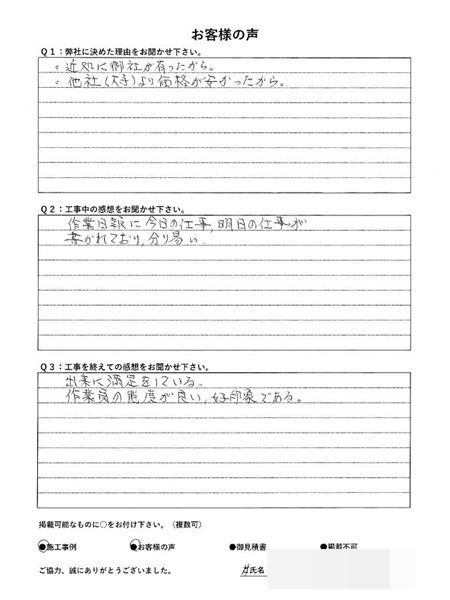 お客様の声
Q1：弊社に決めた理由をお聞かせ下さい。
。近処に御社が有ったから。
。他社(大手)より価格が安かったから。
Q2：工事中の感想をお聞かせ下さい。
作業日報に今日の仕事,明日の仕事が
書かれており,分り易い.
Q3：工事を終えての感想をお聞かせ下さい。
出来に満足をしている。
作業員の態度が良い,好印象である。
掲載可能なものに○をお付け下さい。（複数可）
●施工事例 ●お客様の声 ●御見積書 ●掲載不可
ご協力、誠にありがとうございました。 氏名